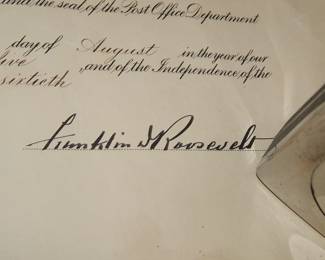 and the seal of the Post Office Department
day of August in the year of our
five , and of the Independence of the
sixtieth
Franklin D Roosevelt